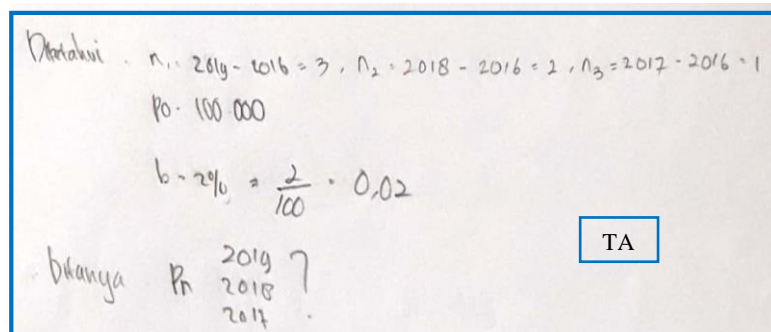 Diketahui . n₁ = 2019 - 2016 = 3, n₂ = 2018 - 2016 = 2, n₃ = 2017 - 2016 = 1
P0 = 100.000
b = 2% = 2/100 = 0,02
ditanya Pn 2019
2018 ?
2017
TA